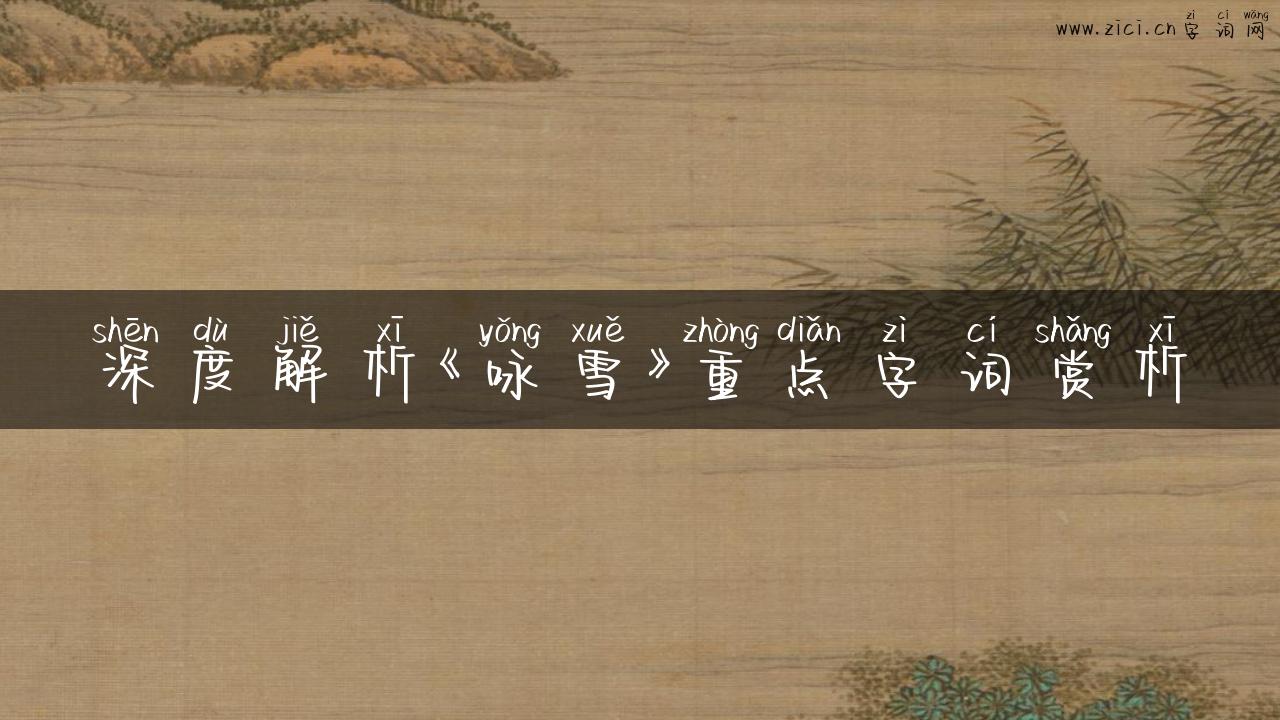 www.zici.cn
zì cí wǎng
字词网
shēn dù jiě xī yǒng xuě zhòng diǎn zì cí shǎng xī
深度解析《咏雪》重点字词赏析